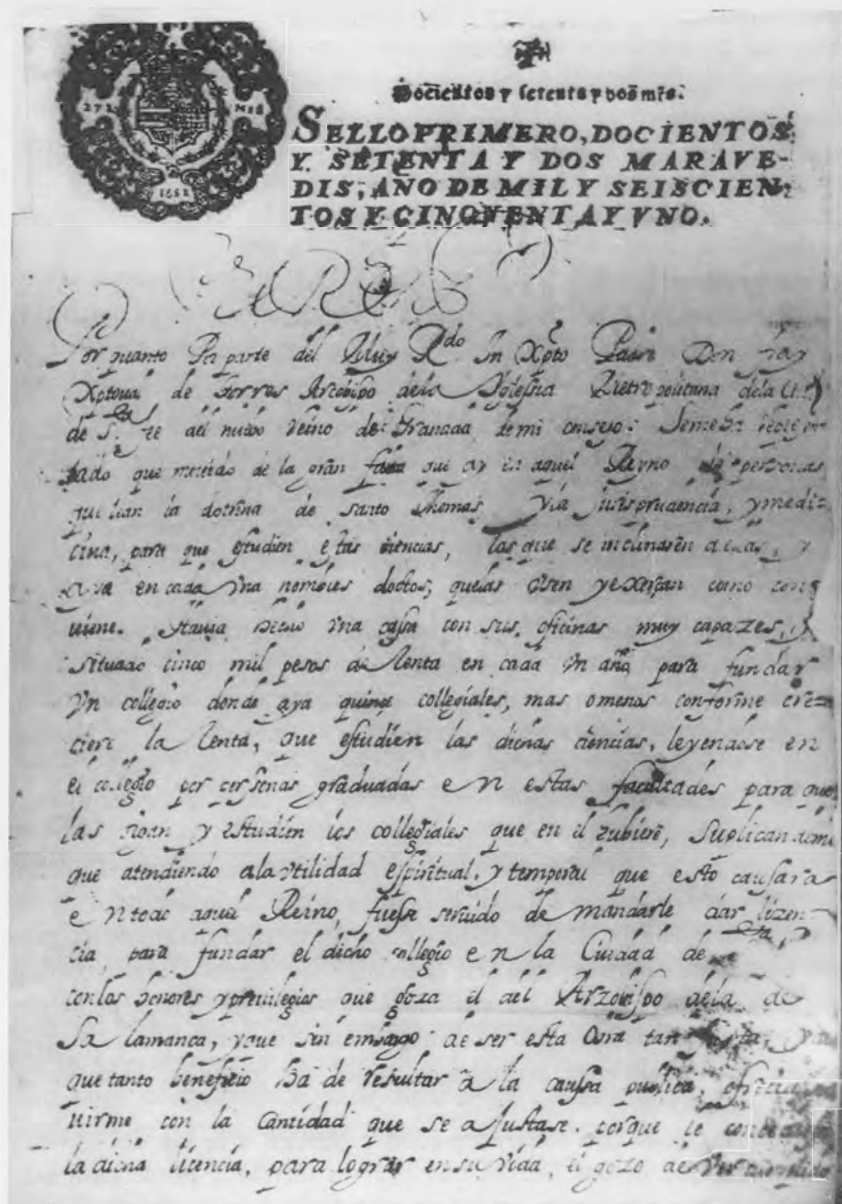 272 MRS
1651
Docientos y setenta y dos mrs.
SELLO PRIMERO, DOCIENTOS
Y SETENTA Y DOS MARAVE-
DIS, AÑO DE MIL Y SEISCIEN-
TOS Y CINQVENTA Y VNO.
El Rey
Por quanto Por parte del Muy Rdo In Xpto Padre Don fray
Xptoual de torres Arçobispo dela Yglesia Metropolitana dela
de S.ta fee del nuebo Reino de Granada de mi consejo: Semeha
tado que mouido de la gran falta que ay en aquel Reyno de personas
que lean la dotrina de santo thomas y la jurisprudencia, y medi
cina, para que estudien estas ciencias, los que se inclinaren a ellas, y
aya en cada vna hombres doctos, que las vsen y exerçan como con
uiene. Hauia hecho vna cassa con sus oficinas muy capazes, y
situado cinco mil pesos de Renta en cada vn año para fundar
Vn collegio donde aya quinçe collegiales, mas o menos conforme cre
ciere la Renta, que estudien las dichas ciencias, leyendose en
el collegio por perssonas graduadas en estas facultades para que
las oigan y estudien los collegiales que en el hubiere, Suplicandome
que atendiendo a la vtilidad espiritual, y temporal que esto causara
en todo aquel Reino, fuese seruido de mandarle dar lizen
cia, para fundar el dicho collegio en la Ciudad de
con los honores y preuilegios que goza el del Arzobispo de la de
Salamanca, y que sin embargo de ser esta Obra tan
que tanto beneficio ha de resultar a la caussa publica, ofrecia
uirme con la cantidad que se ajustase. porque le
la dicha licencia, para lograr en su vida, el gozo de ver